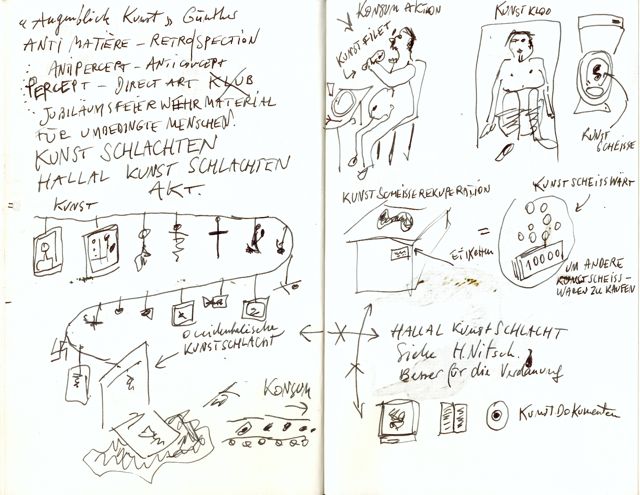 « Augenblick Kunst » Günther
ANTI MATIÈRE – RETROSPECTION
ANTIPERCEPT – ANTICONCEPT
PERCEPT – DIRECT ART KLUB
JUBILÄUMSFEIER WEHRMATERIAL
FÜR UNBEDINGTE MENSCHEN.
KUNST SCHLACHTEN
HALLAL KUNST SCHLACHTEN
AKT.
KUNST
occidentalische
KUNSTSCHLACHT
KONSUM
KONSUM AKTION
KUNSTFILET
KUNSTKLOO
KUNST
SCHEISSE
KUNSTSCHEISSEREKUPERATION
ETIKETTEN
=
KUNSTSCHEISSWÄRT
10000
UM ANDERE
KUNSTSCHEISS-
WAREN ZU KAUFEN
HALLAL KUNSTSCHLACHT
Siehe H. Nitsch.
Besser für die Verdauung
KUNST DOKUMENTEN